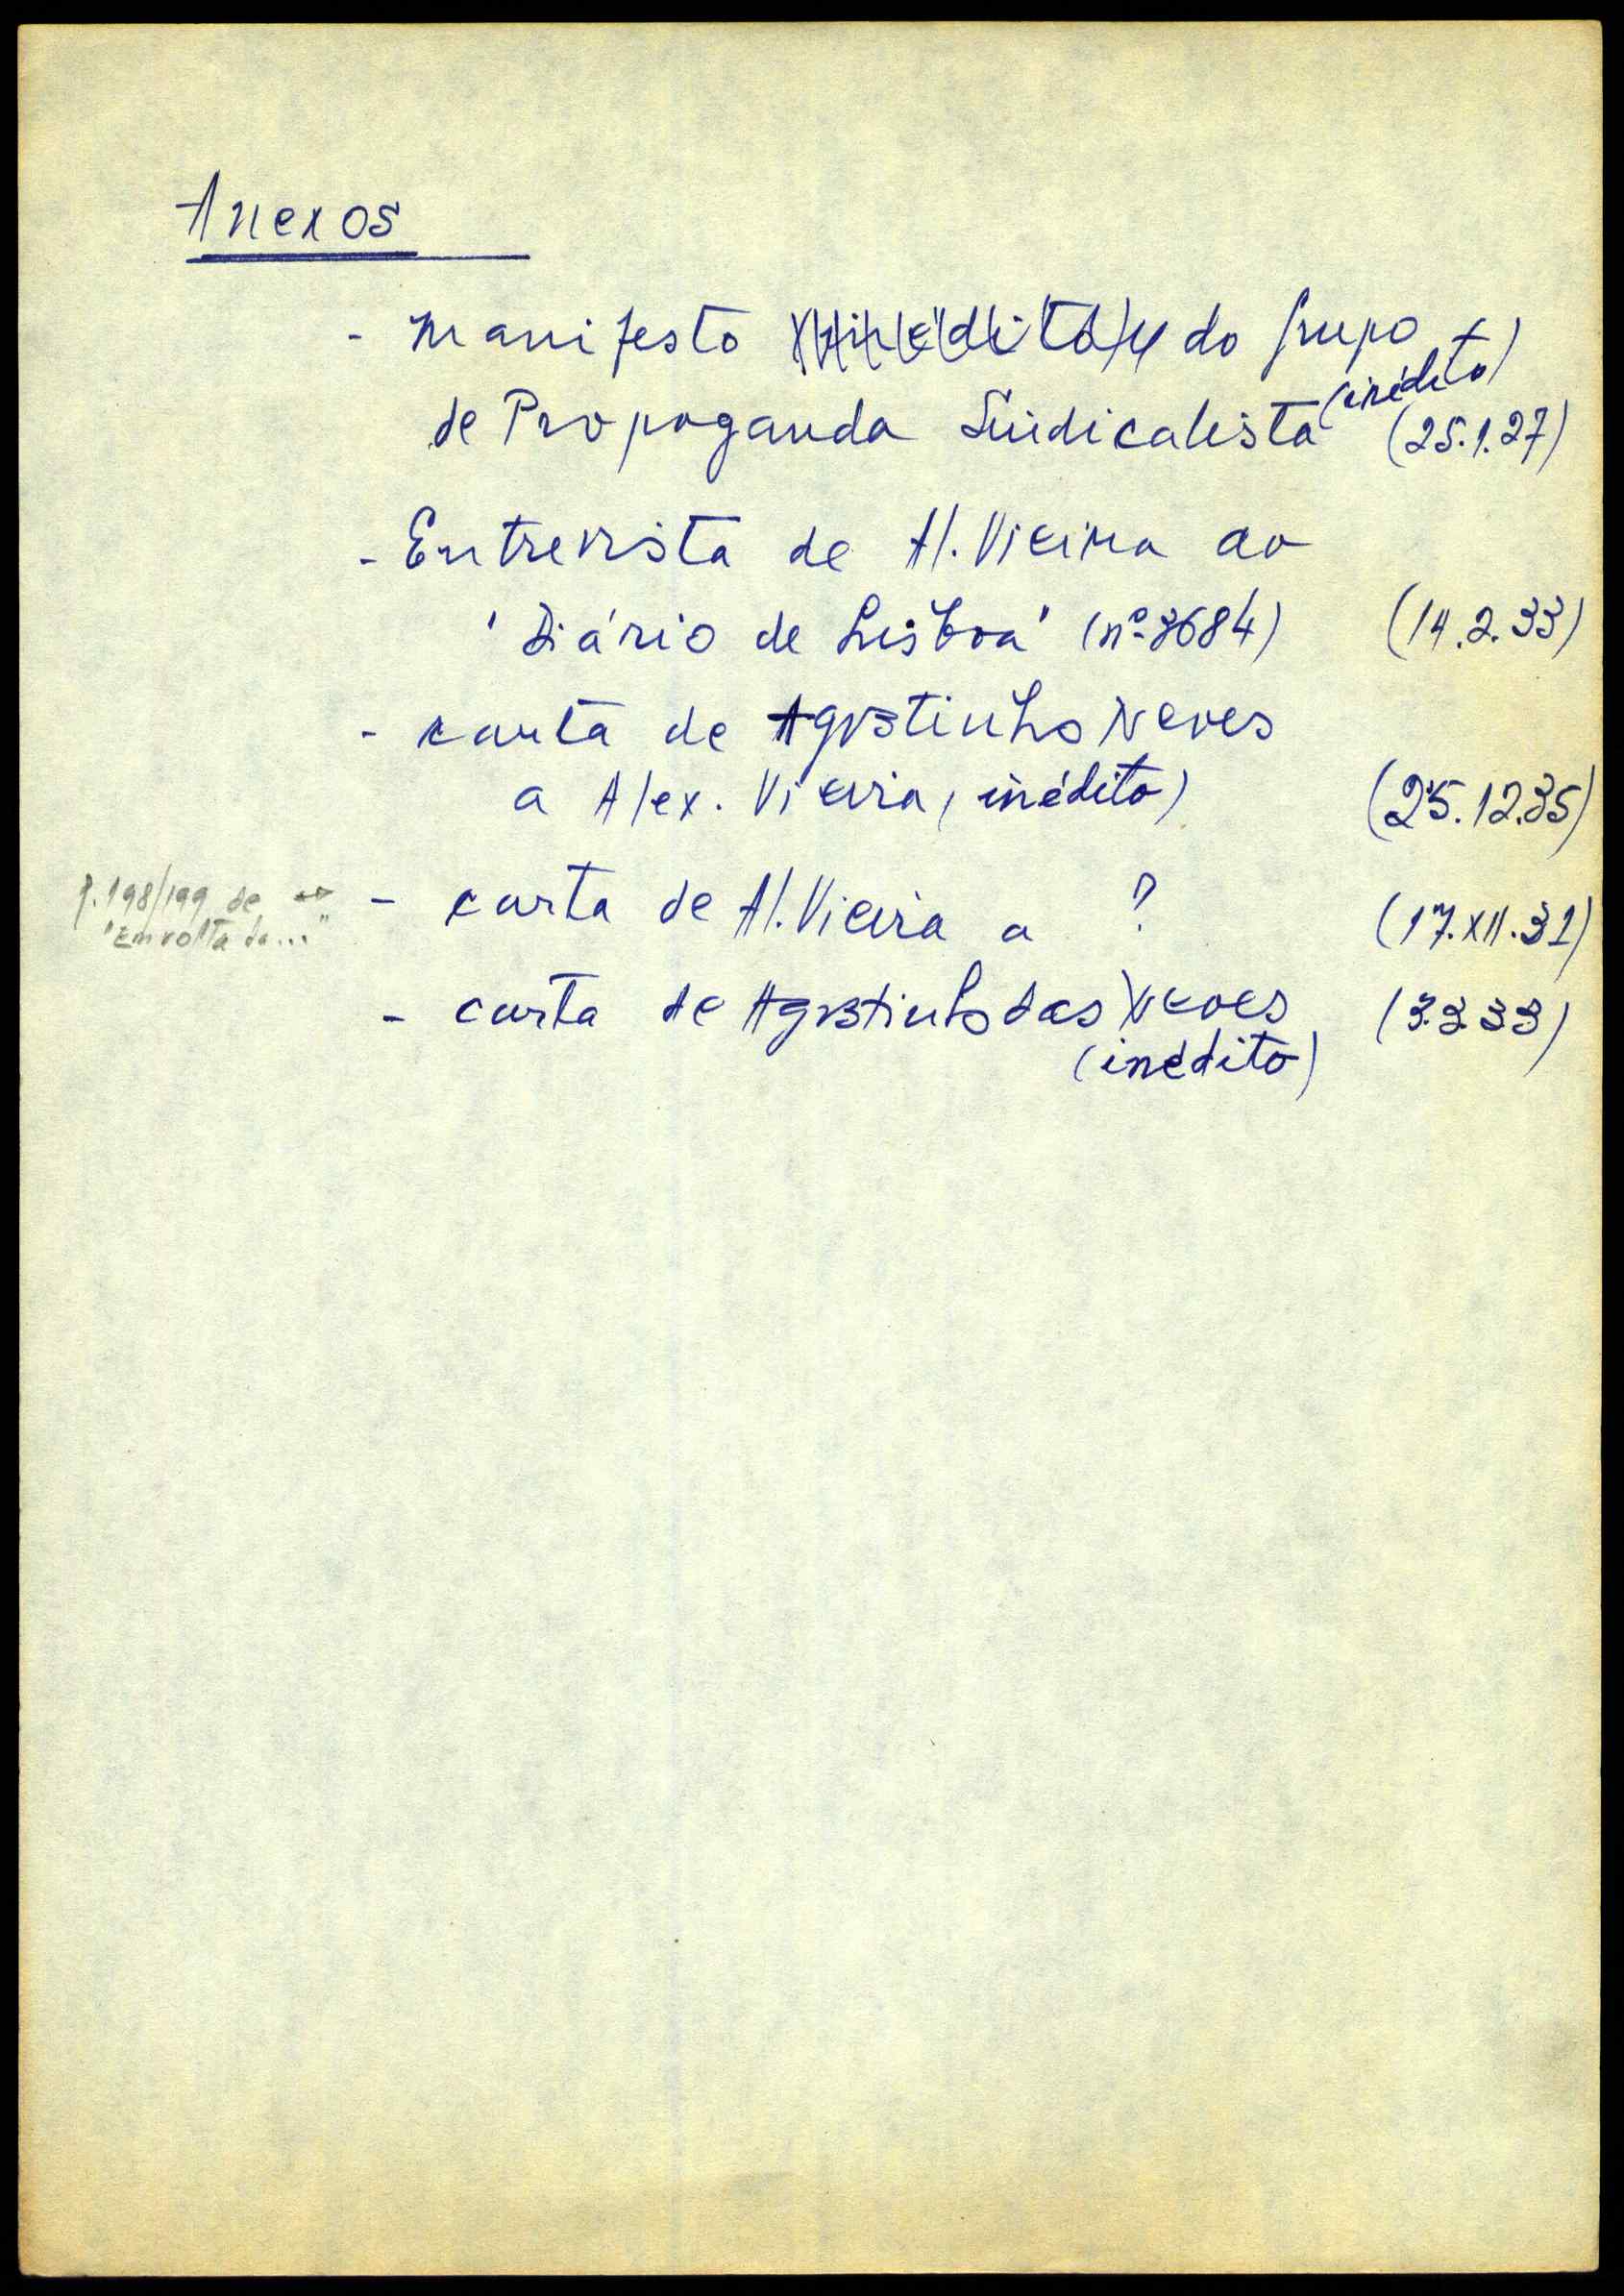 Anexos
- Manifesto inédito do Grupo
(inédito)
de Propaganda Sindicalista (25.1.27)
- Entrevista de Al. Vieira ao
"Diário de Lisboa" (nº 3684) (14.2.33)
- carta de Agostinho Neves
a Alex. Vieira, inédito) (25.12.35)
p. 198/199 de ↔ - carta de Al. Vieira a ? (17.XII.31)
"Em volta da..."
- carta de Agostinho das Neves (3.3.33)
(inédito)